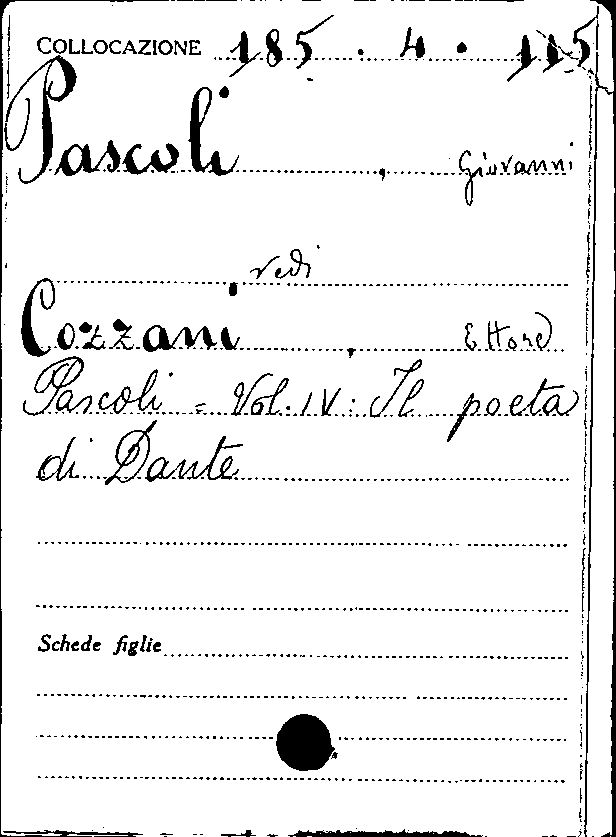 COLLOCAZIONE 185 . 4 . 115
Pascoli, Giovanni
vedi
Cozzani, Ettore
Pascoli = Vol. IV: Il poeta
di Dante
Schede figlie